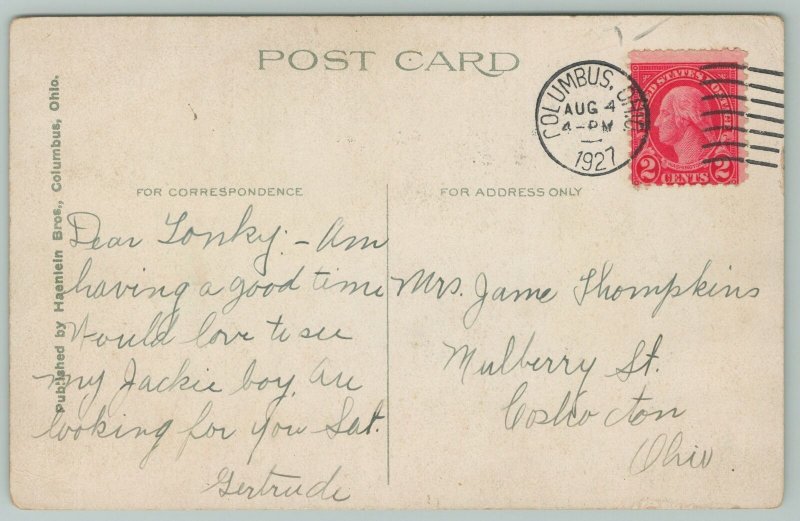 POST CARD
COLUMBUS, OHIO
AUG 4
4-PM
1927
UNITED STATES POSTAGE
WASHINGTON
2 CENTS 2
Published by Haenlein Bros., Columbus, Ohio.
FOR CORRESPONDENCE
FOR ADDRESS ONLY
Dear Tonky:- Am
having a good time
Would love to see
my Jackie boy. Are
looking for you Sat.
Gertrude
Mrs. Jame Thompkins
Mulberry St.
Coshocton
Ohio